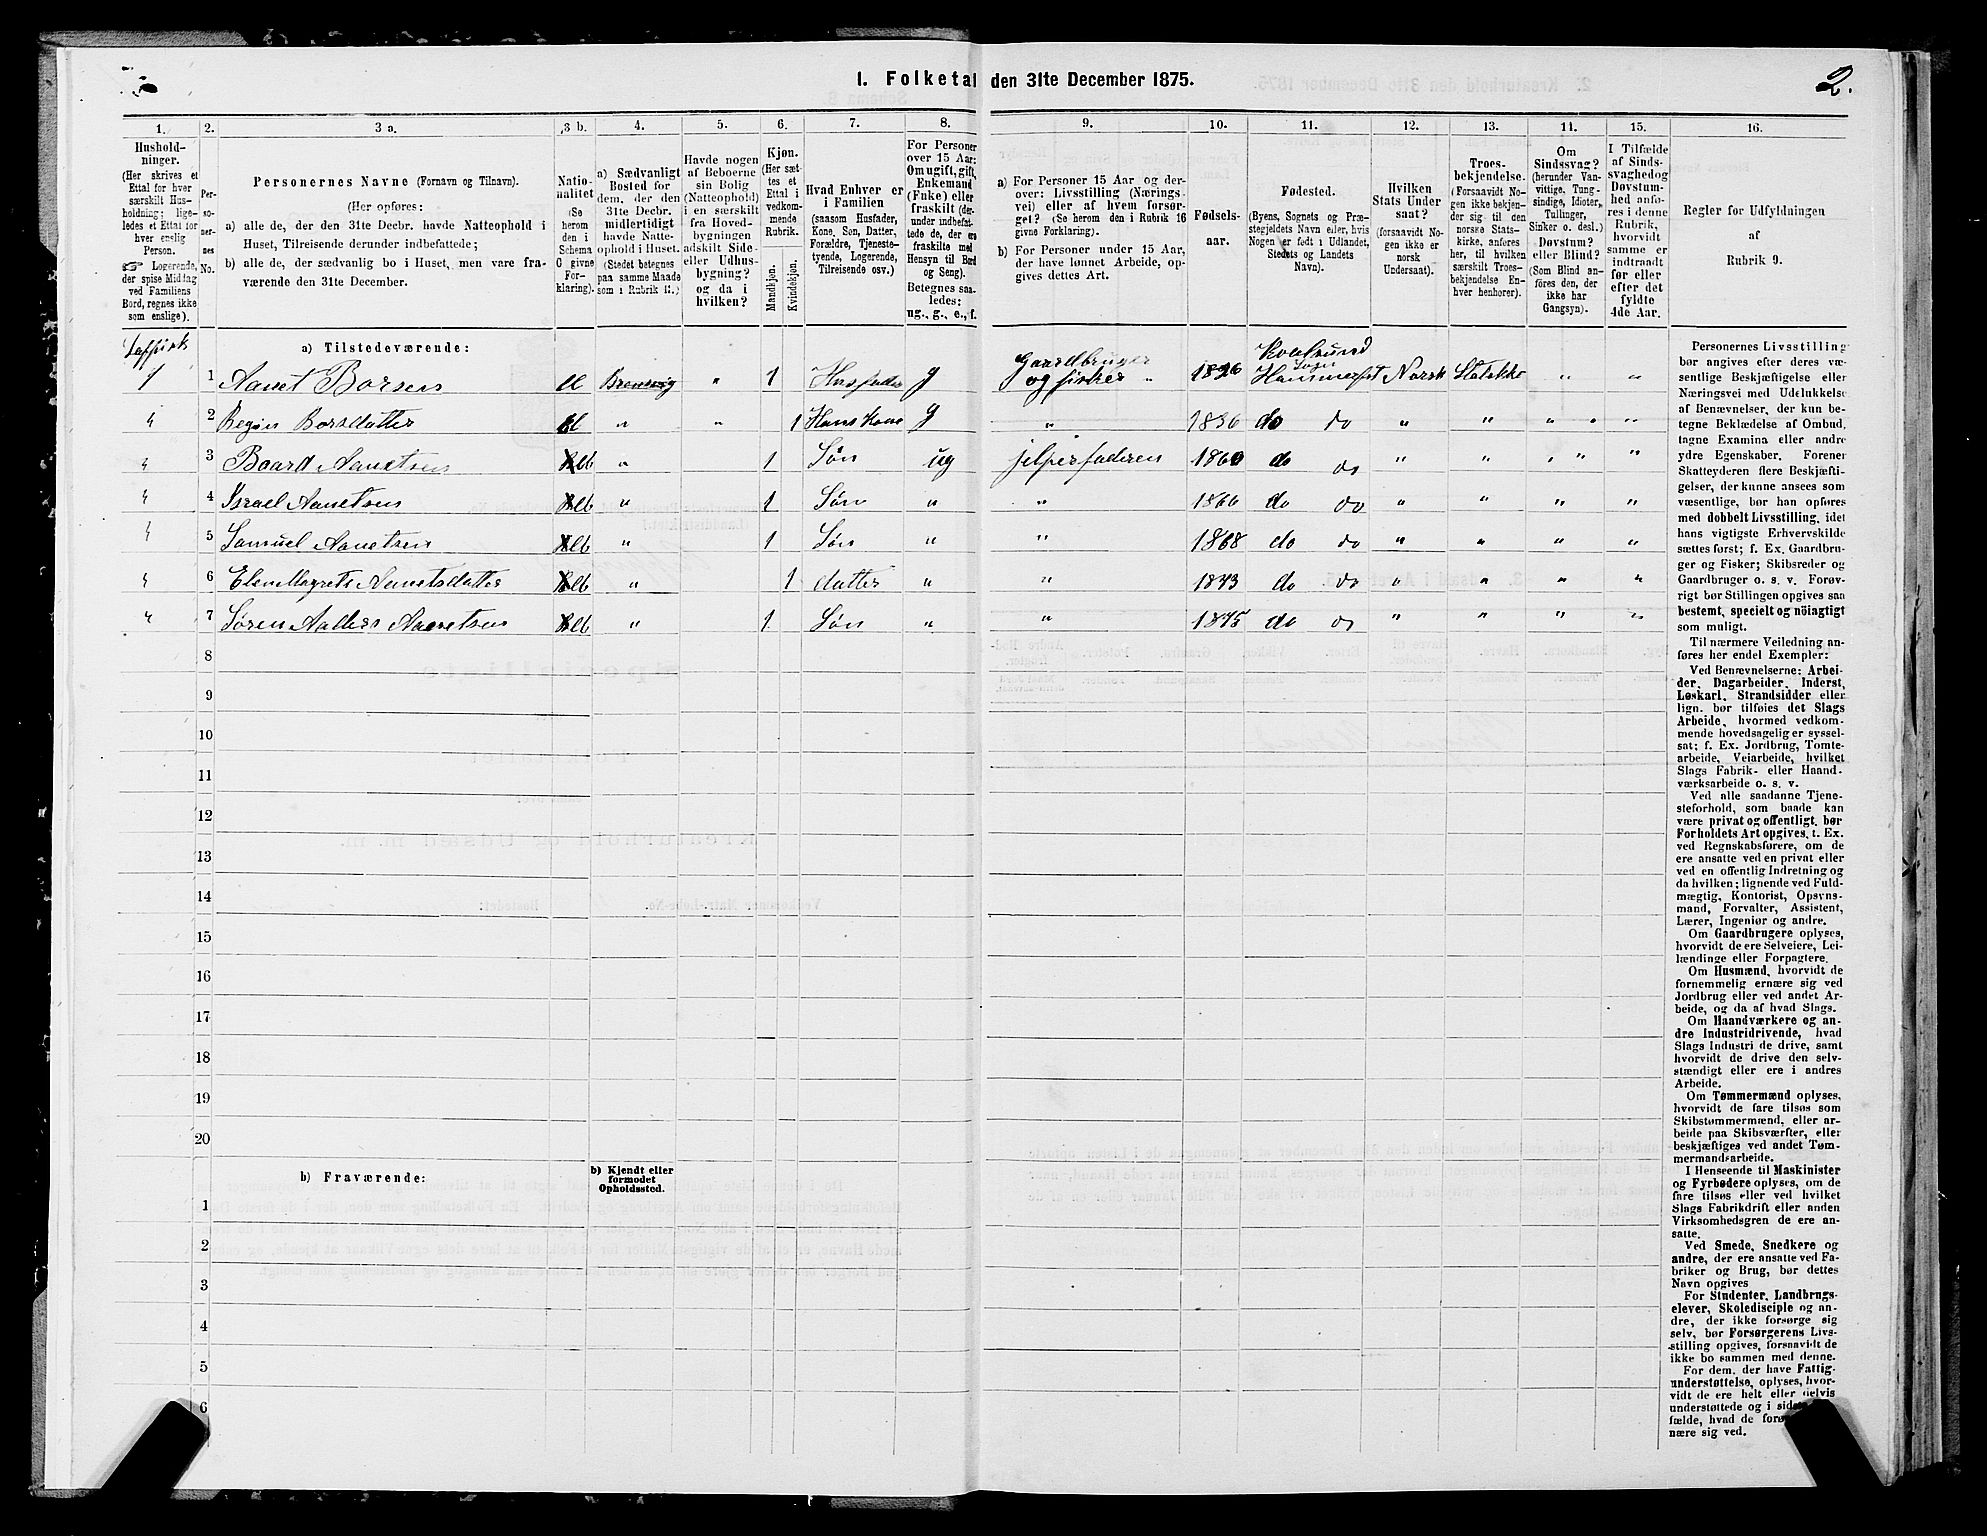 2.
1. Folketal den 31te December 1875.
1. 2. 3 a. 3 b. 4. 5. 6. 7. 8. 9. 10. 11. 12. 13. 14. 15. 16.
Hushold-
ninger.
(Her skrives et
Ettal for hver
særskilt Hus-
holdning; lige-
ledes et Ettal for
hver enslig
Person.
☞ Logerende,
der spise Middag
ved Familiens
Bord, regnes ikke
som enslige).
Per-
so-
ner-
nes
No.
Personernes Navne (Fornavn og Tilnavn).
(Her opføres:
a) alle de, der den 31te Decbr. havde Natteophold i
Huset, Tilreisende derunder indbefattede;
b) alle de, der sædvanlig bo i Huset, men vare fra-
værende den 31te December.
Natio-
nalitet
(Se
herom
den i
Schema
C givne
For-
klaring).
a) Sædvanligt
Bosted for
dem, der den
31te Decbr.
midlertidigt
havde Natte-
ophold i Huset.
(Stedet betegnes
paa samme Maade
som i Rubrik 11.)
Havde nogen
af Beboerne
sin Bolig
(Natteophold)
i en særskilt
fra Hoved-
bygningen
adskilt Side-
eller Udhus-
bygning?
og da i
hvilken?
Kjøn.
(Her sæt-
tes et
Ettal i
vedkom-
mende
Rubrik.
Mandkjøn.
Kvindekjøn.
Hvad Enhver er
i Familien
(saasom Husfader,
Kone, Søn, Datter,
Forældre, Tjeneste-
tyende, Logerende,
Tilreisende osv.)
For Personer
over 15 Aar:
Om ugift, gift,
Enkemand
(Enke) eller
fraskilt (der-
under indbefat-
tede de, der ere
fraskilte med
Hensyn til Bord
og Seng).
Betegnes saa-
ledes:
ug., g., e., f.
a) For Personer 15 Aar og der-
over: Livsstilling (Nærings-
vei) eller af hvem forsør-
get? (Se herom den i Rubrik 16
givne Forklaring).
b) For Personer under 15 Aar,
der have lønnet Arbeide, op-
gives dettes Art.
Fødsels-
aar.
Fødested.
(Byens, Sognets og Præ-
stegjeldets Navn eller, hvis
Nogen er født i Udlandet,
Stedets og Landets
Navn).
Hvilken
Stats Under
saat?
(forsaavidt No-
gen ikke er
norsk
Undersaat).
Troes-
bekjendelse.
(Forsaavidt No-
gen ikke bekjen-
der sig til den
norske Stats-
kirke, anføres
her, til hvilken
særskilt Troes-
bekjendelse En-
hver henhører).
Om
Sindssvag?
(herunder Van-
vittige, Tung-
sindige, Idioter,
Tullinger,
Sinker o. desl.)
Døvstum?
eller Blind?
(Som Blind an-
føres den, der
ikke har
Gangsyn).
I Tilfælde
af Sinds-
svaghed og
Døvstum-
hed anfø-
res i denne
Rubrik,
hvorvidt
samme er
indtraadt
før eller
efter det
fyldte
4de Aar.
Regler for Udfyldningen
af
Rubrik 9.
a) Tilstedeværende:
1 1 Aanet Borsen 1 Husfader g Gaardbruger og fisker " 1826 Hammerfest Norsk " "
" 2 Borsdatter " " 1 Hans Kone g " 1836 do do " " " " "
" 3 Baard Aanetsen " 1 Søn ug faderen 1860 do do " " " " "
" 4 Israel Aanetsen " 1 Søn " " 1866 do do " " " "
" 5 Samuel Aanetsen " 1 Søn " " 1868 do do " " " "
" 6 Elen Magrete Aanetsdatter " 1 datter " " 1873 do do " " " "
" 7 Søren Aanetsen " 1 Søn " " 1875 do do " " " "
8
9
10
11
12
13
14
15
16
17
18
19
20
b) Fraværende:
b) Kjendt eller
formodet
Opholdssted.
1
2
3
4
5
6
Personernes Livsstilling
bør angives efter deres væ-
sentlige Beskjæftigelse eller
Næringsvei med Udelukkelse
af Benævnelser, der kun be-
tegne Beklædelse af Ombud,
tagne Examina eller andre
ydre Egenskaber. Forener
Skatteyderen flere Beskjæfti-
gelser, der kunne ansees som
væsentlige, bør han opføres
med dobbelt Livsstilling, idet
hans vigtigste Erhvervskilde
sættes først; f. Ex. Gaardbru-
ger og Fisker; Skibsreder og
Gaardbruger o. s. v. Forøv-
rigt bør Stillingen opgives saa
bestemt, specielt og nöiagtigt
som muligt.
Til nærmere Veiledning an-
føres her endel Exempler:
Ved Benævnelserne: Arbei-
der, Dagarbeider, Inderst,
Løskarl, Strandsidder eller
lign. bør tilføies det Slags
Arbeide, hvormed vedkom-
mende hovedsagelig er syssel-
sat; f. Ex. Jordbrug, Tomte-
arbeide, Veiarbeide, hvilket
Slags Fabrik- eller Haand-
værksarbeide o. s. v.
Ved alle saadanne Tjene-
steforhold, som baade kan
være privat og offentligt, bør
Forholdets Art opgives, t. Ex.
ved Regnskabsførere, om de
ere ansatte ved en privat eller
ved en offentlig Indretning og
da hvilken; lignende ved Fuld-
mægtig, Kontorist, Opsyns-
mand, Forvalter, Assistent,
Lærer, Ingeniør og andre.
Om Gaardbrugere oplyses,
hvorvidt de ere Selveiere, Lei-
lændinge eller Forpagtere.
Om Husmænd, hvorvidt de
fornemmelig ernære sig ved
Jordbrug eller ved andet Ar-
beide, og da af hvad Slags.
Om Haandværkere og an-
dre Industridrivende, hvad
Slags Industri de drive, samt
hvorvidt de drive den selv-
stændigt eller ere i andres
Arbeide.
Om Tømmermænd oplyses,
hvorvidt de fare tilsøs som
Skibstømmermænd, eller ar-
beide paa Skibsværfter, eller
beskjæftiges ved andet Tøm-
mermandsarbeide.
I Henseende til Maskinister
og Fyrbødere oplyses, om de
fare tilsøs eller ved hvilket
Slags Fabrikdrift eller anden
Virksomhedsgren de ere an-
satte.
Ved Smede, Snedkere og
andre, der ere ansatte ved Fa-
briker og Brug, bør dettes
Navn opgives
For Studenter, Landbrugs-
elever, Skoledisciple og an-
dre, der ikke forsørge sig
selv, bør Forsørgerens Livs-
stilling opgives, forsaavidt de
ikke bo sammen med denne.
For dem, der have Fattig-
understøttelse, oplyses, hvor-
vidt de ere helt eller delvis
understøttede og i sidst
fælde, hvad de
nære sig ved.